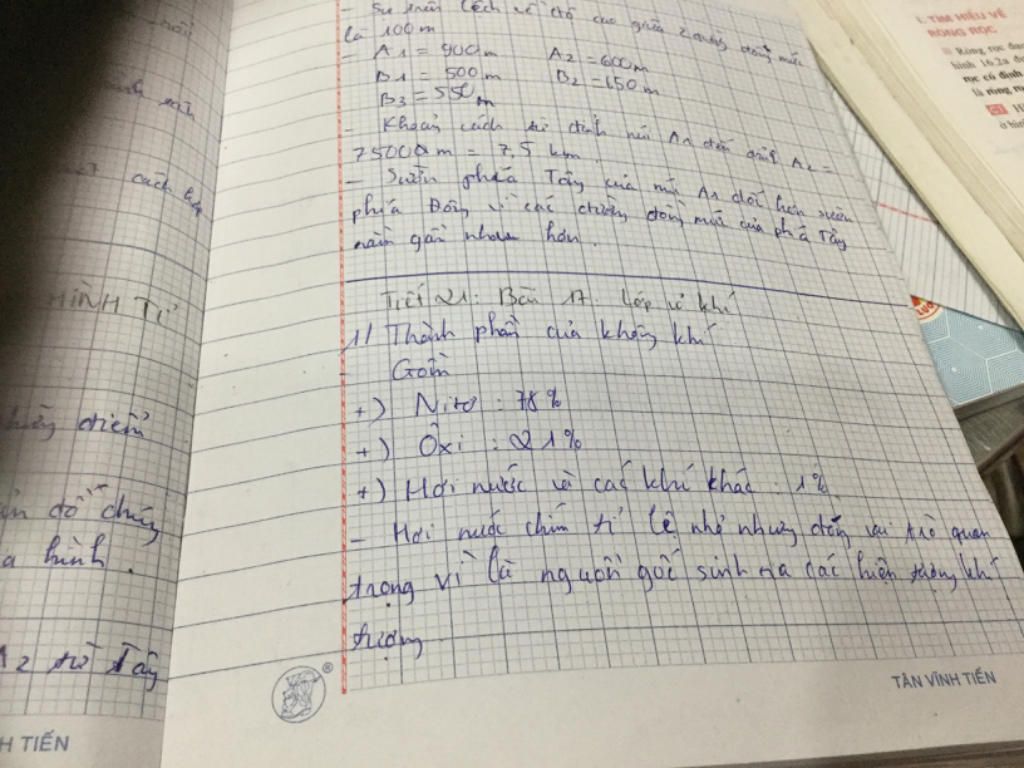 rồi
cách
HÌNH TỈ
điểm
đồ chúng
a hình.
A2 từ Tây
H TIẾN
- Sự chênh lệch về độ cao giữa 2 đường đồng mức
là 100 m
- A1 = 900 m A2 = 600 m
B1 = 500 m B2 = 650 m
B3 = 550 m
- Khoảng cách từ đỉnh núi A1 đến đỉnh A2 =
75000 m = 7,5 km.
- Sườn phía Tây của núi A1 dốc hơn sườn
phía Đông vì các đường đồng mức của phía Tây
nằm gần nhau hơn.
Tiết 21: Bài 17. Lớp vỏ khí
1/ Thành phần của không khí
Gồm
+) Nitơ : 78%
+) Ôxi : 21%
+) Hơi nước và các khí khác : 1%.
- Hơi nước chiếm tỉ lệ nhỏ nhưng đóng vai trò quan
trọng vì là nguồn gốc sinh ra các hiện tượng khí
tượng
TÂN VĨNH TIẾN
®
I. TÌM HIỂU VỀ
RÒNG RỌC
Ròng rọc đư
hình 16.2a đư
rọc cố định
là ròng rọ
ở hìn